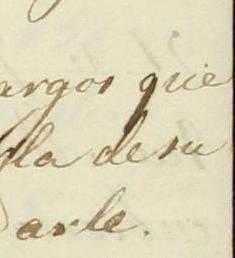 argos que
la de su
arle.